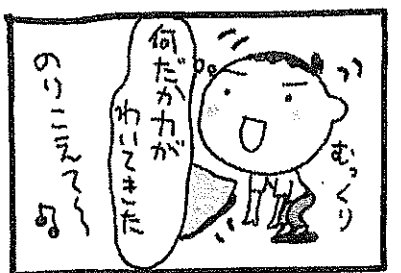 むっくり
何だか力が
わいてきた
のりこえて〜